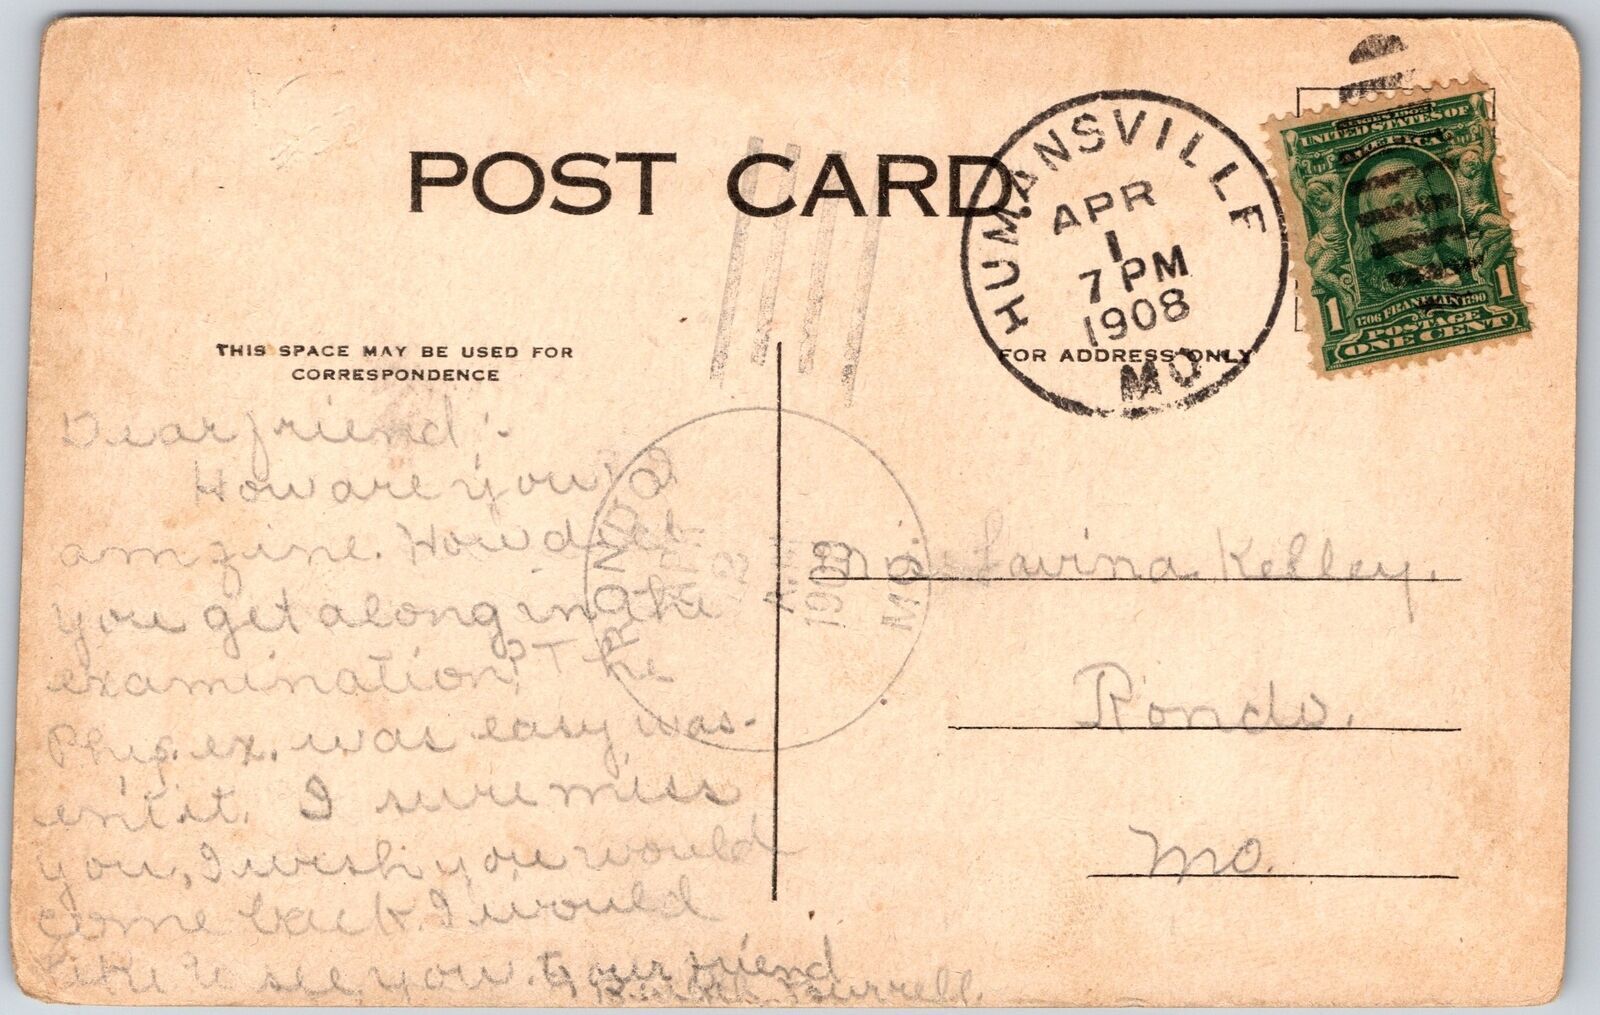 POST CARD
HUMANSVILLE
APR
1
7 PM
1908
MO.
SERIES 1902
UNITED STATES OF
AMERICA
1706 FRANKLIN 1790
1 1
POSTAGE
ONE CENT
THIS SPACE MAY BE USED FOR
CORRESPONDENCE
FOR ADDRESS ONLY
RONDO
APR
2
AM
1908
MO.
Dear friend:-
How are you? I
am fine. How did
you get along in the
examination? The
Phys. ex. was easy was-
ent it. I sure miss
you, I wish you would
come back. I would
like to see you. Your friend
Burrell.
Lavina Kelley.
Rondo.
Mo.